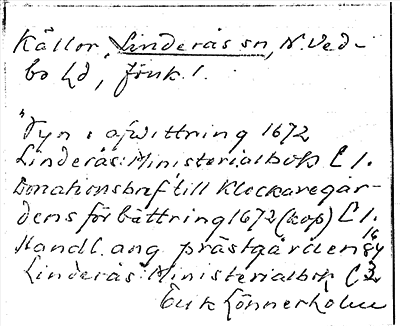 Källor, Linderås sn, N. Ved-
bo hd, Jönk. l.
"Syn o afwittring 1672
Linderås: Ministerialbok C 1.
Donationsbref till Klockaregår-
dens förbättring 1672 (kop) C 1.
Handl. ang. prästgården 1684
Linderås Ministerialbok C 2
Erik Lönnerholm